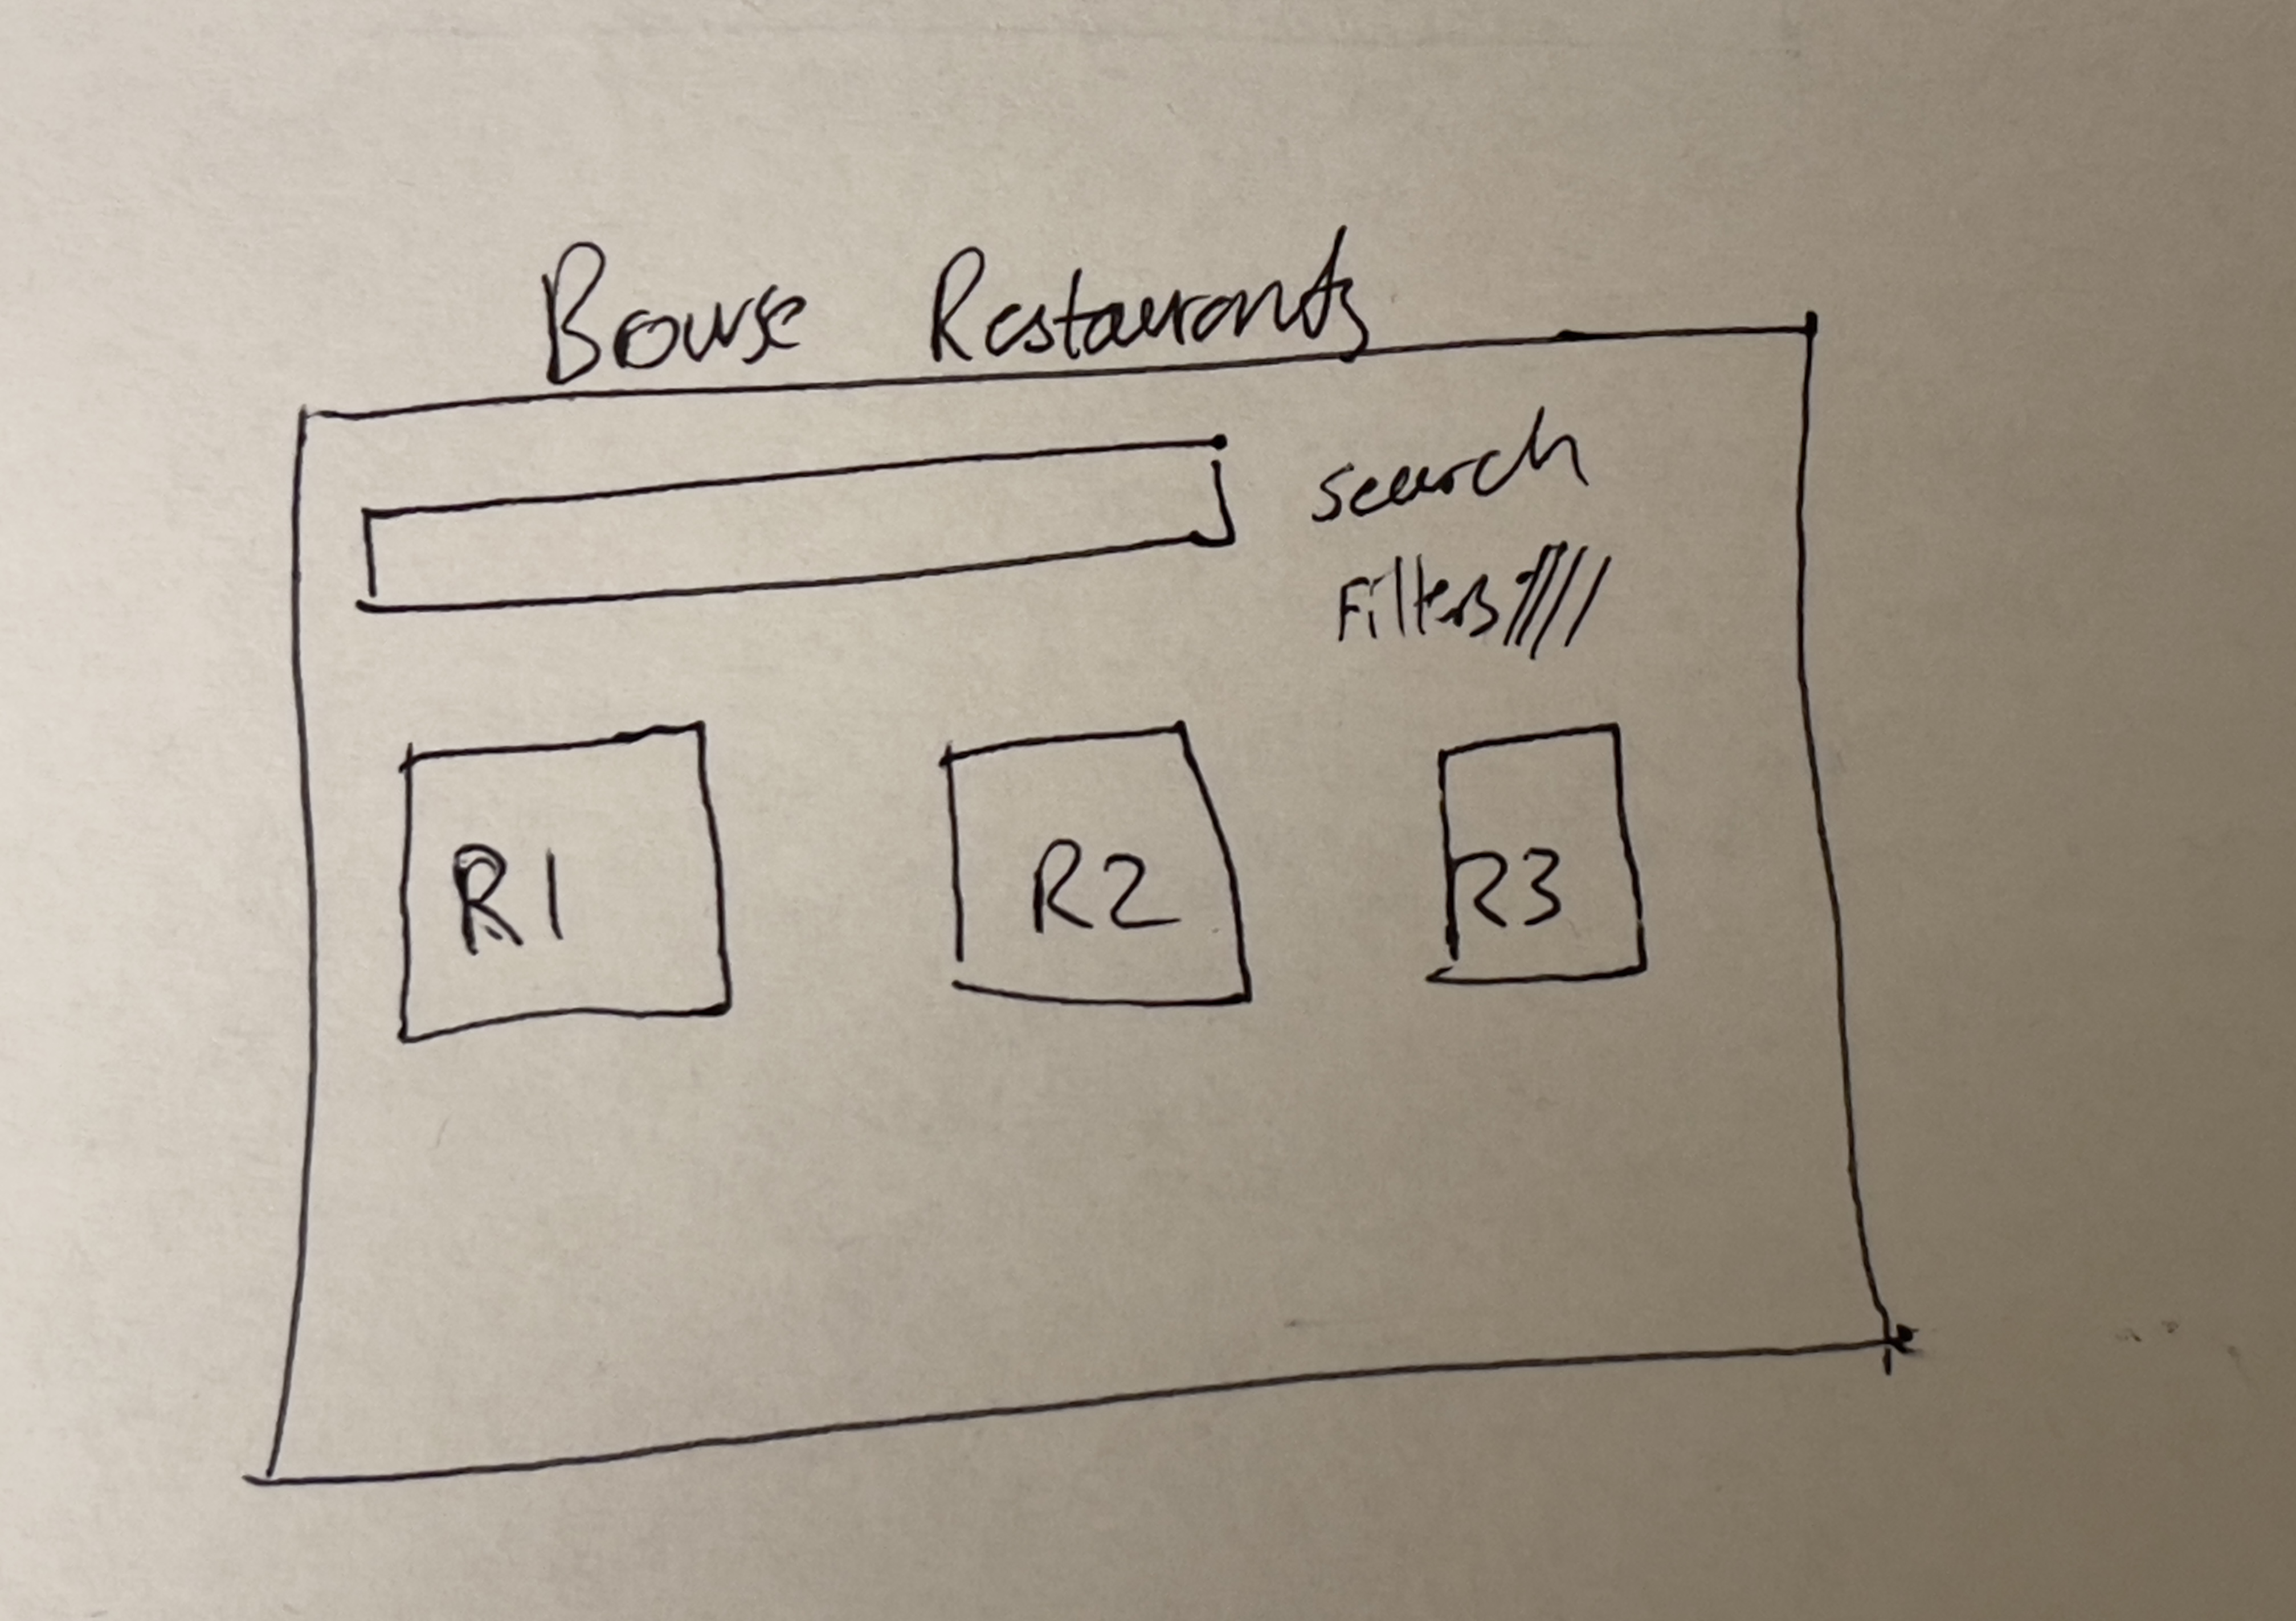 Browse Restaurants
search
Filters
R1
R2
R3